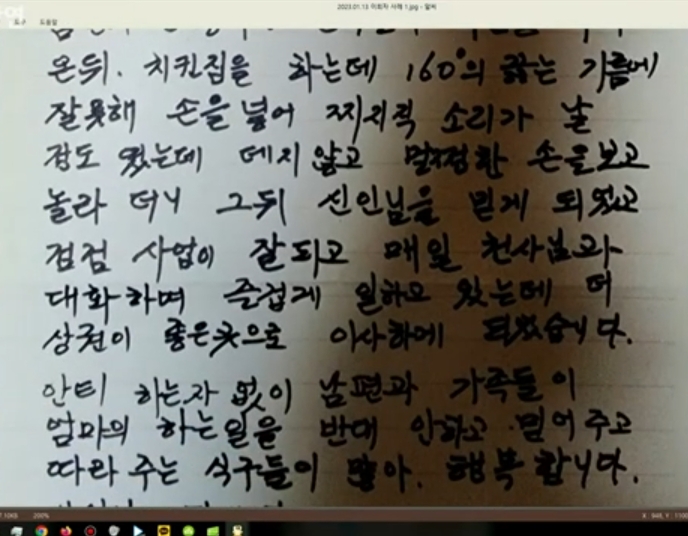 2023.01.13 이희자 사례 1.jpg - 알씨
도구 도움말
온뒤. 치킨집을 하는데 160°의 끓는 기름에
잘못해 손을 넣어 찌지직 소리가 날
정도 였는데 데지 않고 멀쩡한 손을 보고
놀라 더니 그뒤 신인님을 믿게 되었고
점점 사업이 잘되고 매일 천사님과
대화하며 즐겁게 일하고 있는데 더
상권이 좋은곳으로 이사하에 되었습니다.
안티 하는자 없이 남편과 가족들이
엄마의 하는일을 반대 안하고 믿어주고
따라주는 식구들이 많아. 행복합니다.
200%